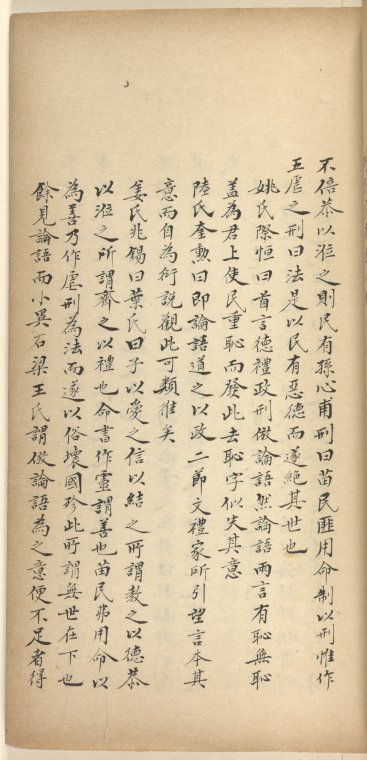 不倍恭以涖之則民有孫心甫刑曰苗民匪用命制以刑惟作
五虐之刑曰法是以民有惡德而遂絕其世也
姚氏際恒曰首言德禮政刑倣論語然論語兩言有恥無恥
盖為君上使民重恥而發此去恥字似失其意
陸氏奎勲曰即論語道之以政二節文禮家所引望言本其
意而自為衍說觀此可類推矣
姜氏兆錫曰葉氏曰子以愛之信以結之所謂教之以德恭
以涖之所謂齊之以禮也命書作靈謂善也苗民弗用命以
為善乃作虐刑為法而遂以俗壞國殄此所謂無世在下也
餘見論語而小異石梁王氏謂倣論語為之意便不足者得